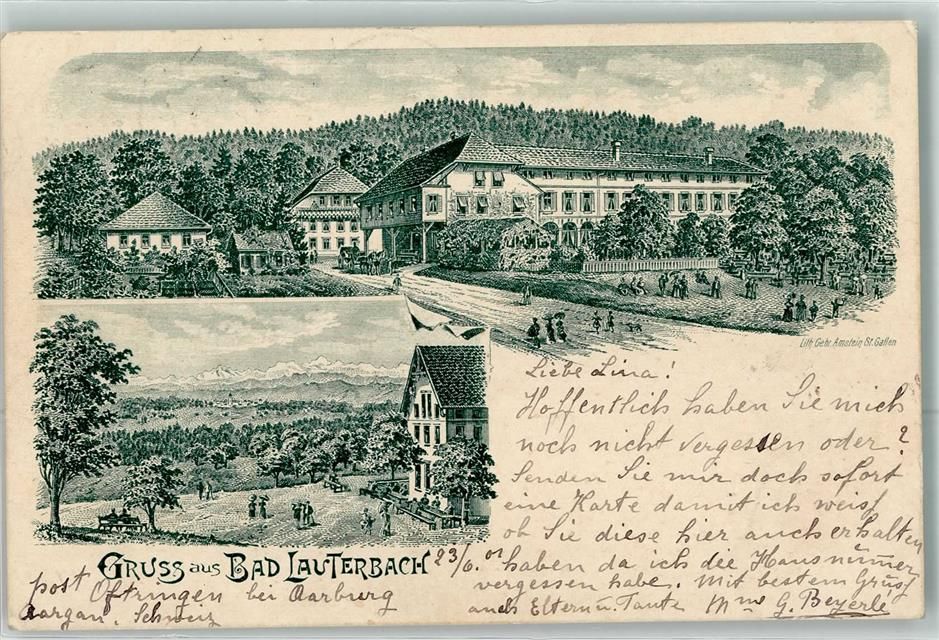 Lith. Gebr. Amstein, St. Gallen
Liebe Lina!
Hoffentlich haben Sie mich
noch nicht vergessen oder?
Senden Sie mir doch sofort
eine Karte damit ich weiß
ob Sie diese hier auch erhalten
haben da ich die Hausnummer
vergessen habe. Mit bestem Gruß
auch Eltern u. Tante Mme G. Beyerlé
GRUSS aus BAD LAUTERBACH 23/6. 01
post Oftringen bei Aarburg
Aargau. Schweiz